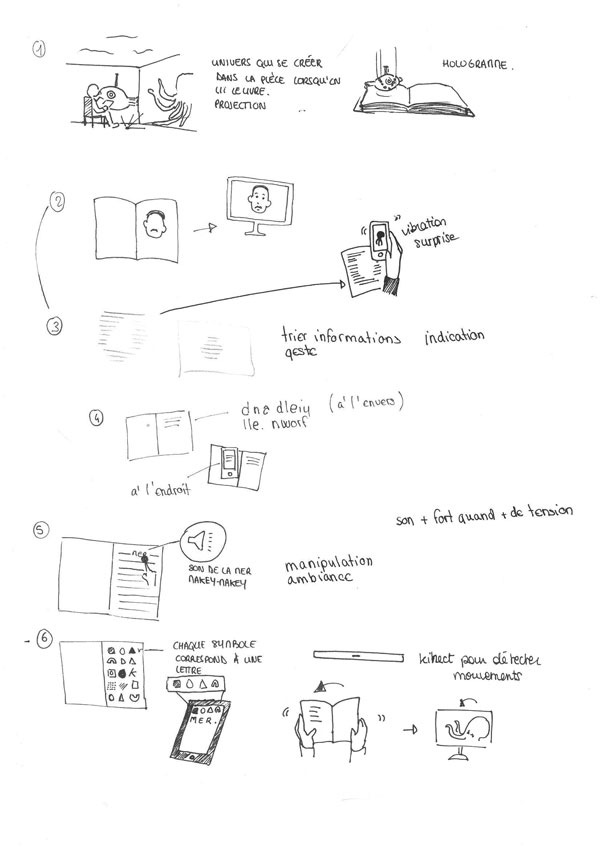 1
UNIVERS QUI SE CRÉER
DANS LA PIÈCE LORSQU'ON
LIT LE LIVRE.
PROJECTION
HOLOGRAMME.
2
vibration
surprise
3
trier informations indication
geste
4
(à l'envers)
à l'endroit
son + fort quand + de tension
5
MER
SON DE LA MER
MAKEY-MAKEY
manipulation
ambiance
6
CHAQUE SYMBOLE
CORRESPOND À UNE
LETTRE
MER.
kinect pour détecter
mouvements